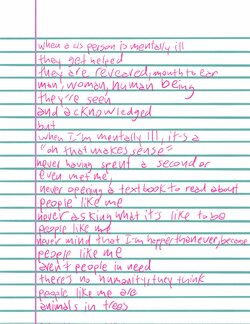 when a cis person is mentally ill
they get helped
they are revered, mouth to ear
man, woman, human being
they're seen
and acknowledged
but
when I'm mentally Ill, it's a
"oh that makes sense"
never having spent a second or
even met me,
never opening a textbook to read about
people like me
never asking what it's like to be
people like me
never mind that I'm happer than ever, become
people like me
aren't people in need
there's no humanity, they think
people like me are
animals in trees